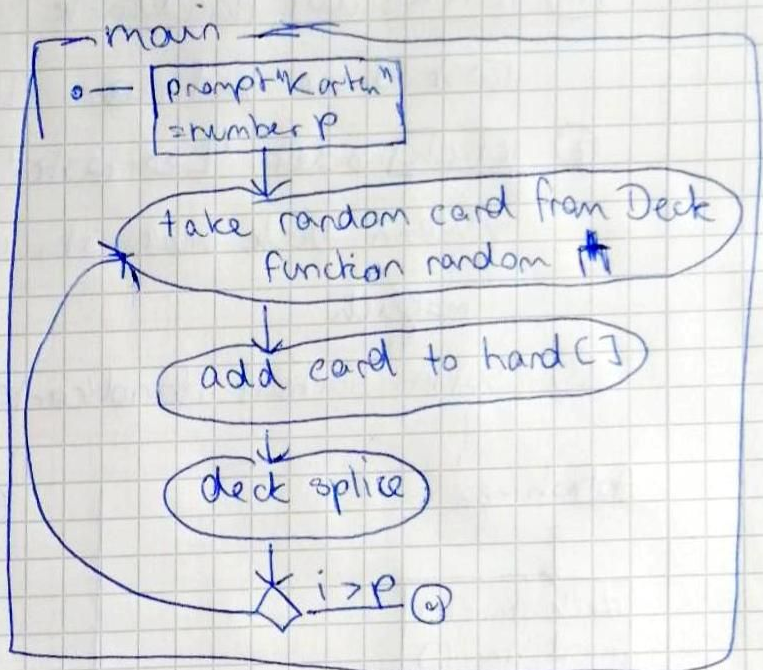 main
prompt "Karten"
= number P
take random card from Deck
function random
add card to hand []
deck splice
i > P